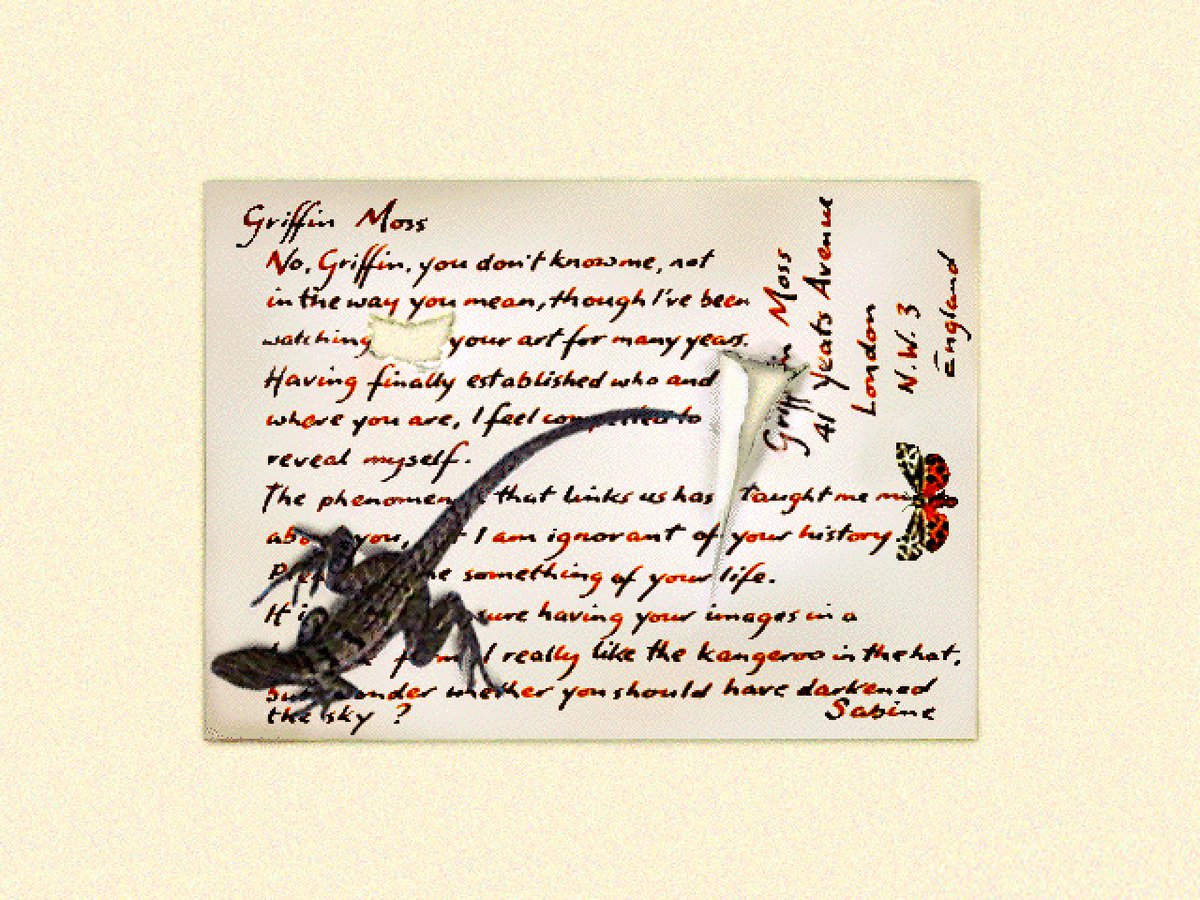 Griffin Moss
No, Griffin, you don't know me, not
in the way you mean, though I've been
watching your art for many years.
Having finally established who and
where you are, I feel to
reveal myself.
The that links us has taught me
you, I am ignorant of your history.
something of your life.
It having your images in a
I really like the kangeroo in the hat,
whether you should have darkened
the sky ?
Sabine
Griffin Moss
41 Yeats Avenue
London
N.W. 3
England